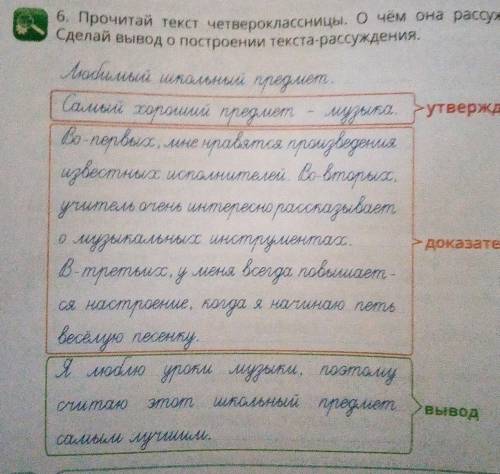 6. Прочитай текст четвероклассницы. О чём она рассуж
Сделай вывод о построении текста-рассуждения.
Любимый школьный предмет.
Самый хороший предмет - музыка.
утвержд
Во-первых, мне нравятся произведения
известных исполнителей. Во-вторых,
учитель очень интересно рассказывает
о музыкальных инструментах.
В-третьих, у меня всегда повышает-
ся настроение, когда я начинаю петь
весёлую песенку.
доказате
Я люблю уроки музыки, поэтому
считаю этот школьный предмет
самым лучшим.
вывод